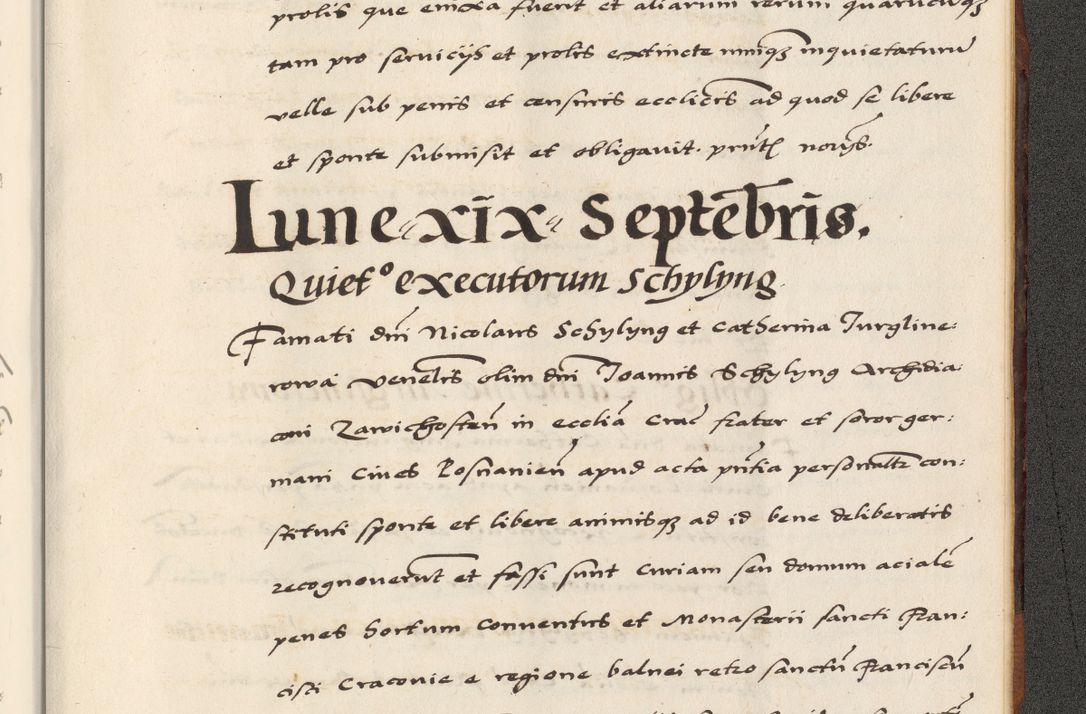 prolis que enixa fuerit et aliarum rerum quarucūqȝ
tam pro servicijs et prolis extincte nūiqȝ inquietaturū
velle sub penis et censuris ecclicis ad quod se libere
et sponte submisit et obligavit. prn̄t nov̄s.
Lune xix Septēbris.
Quietº executorum Schylyng
Famati dn̄i Nicolaus Schylyng et Catherina Jurgline:
rowa venēlis olim dn̄i Joannis Schylyng Archidia:
coni Zawichosten̄ in ecclīa Crac̄ frater et soror ger:
mani Cives Posnanien̄ apud acta pn̄tia personālt con:
stituti sponte et libere animisqȝ ad id bene deliberatis
recognoverūt et fassi sunt Curiam seu domum acialē
penes hortum Conventus et Monasterii sancti Fran:
cisci Cracovie e regione balnei retro sanctū Franciscū